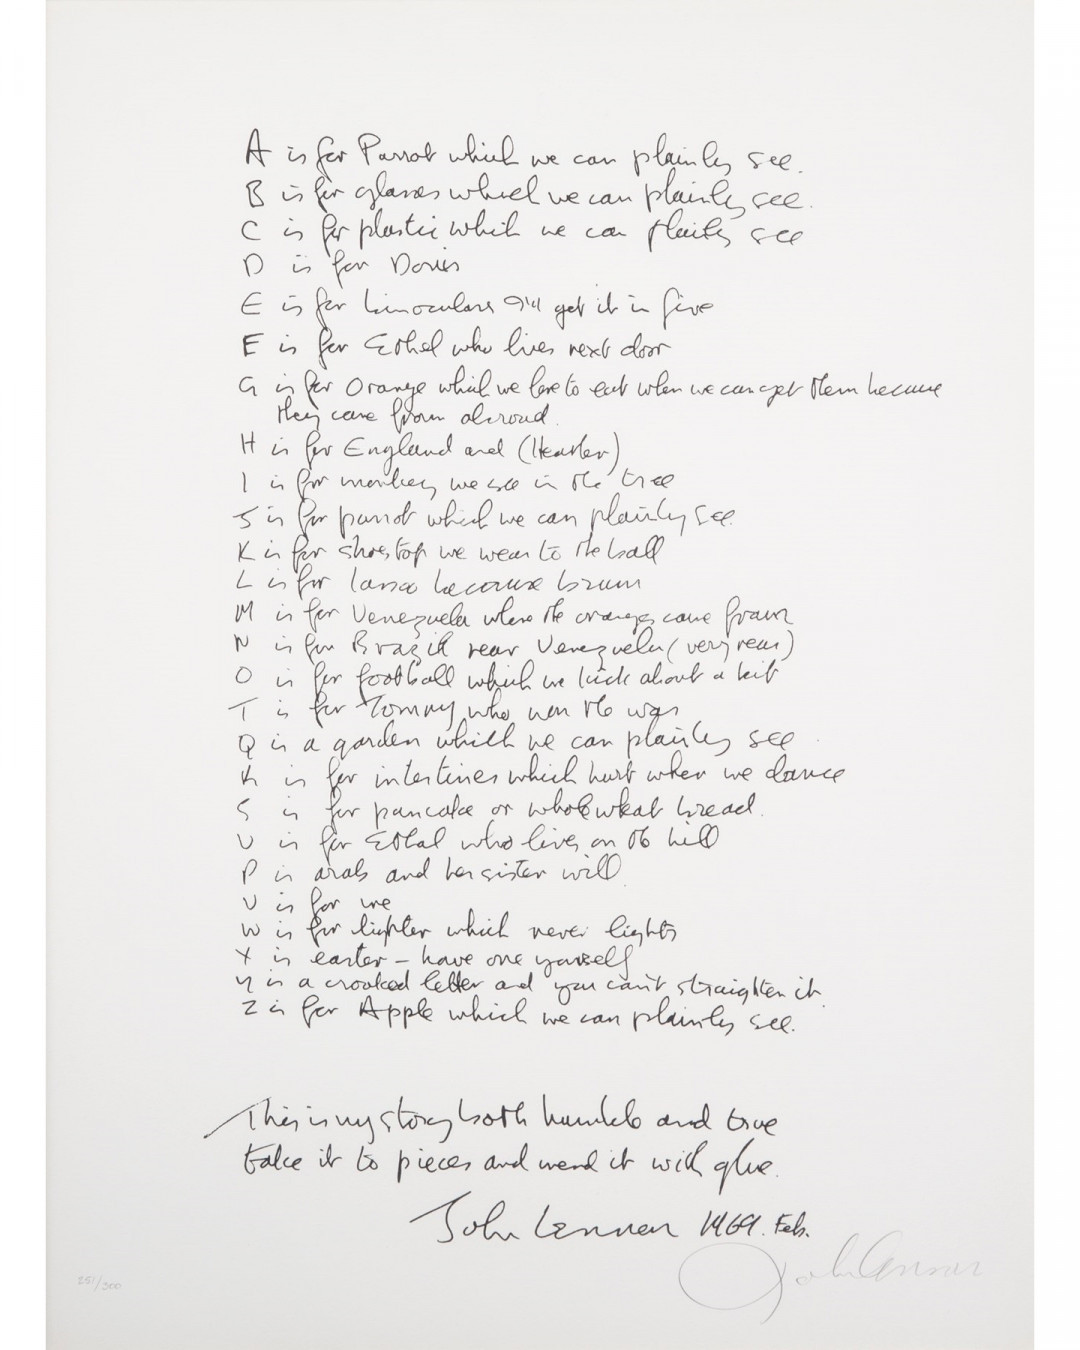 A is for Parrot which we can plainly see.
B is for glasses which we can plainly see.
C is for plastic which we can plainly see
D is for Doris
E is for binoculars I'll get it in five
E is for Ethel who lives next door
G is for Orange which we love to eat when we can get them because
they come from abroad.
H is for England and (Heather)
I is for monkey we see in the tree
J is for parrot which we can plainly see.
K is for shoestop we wear to the ball
L is for because brum
M is for Venezuela where the oranges come from
N is for Brazil near Venezuela (very near)
O is for football which we kick about a bit
T is for Tommy who won the war
Q is a garden which we can plainly see
R is for intestines which hurt when we dance
S is for pancake or wholewheat bread.
U is for Ethel who lives on the hill
P is arab and her sister will
V is for me
W is for lighter which never lights
X is easter – have one yourself
Y is a crooked letter and you can't straighten it.
Z is for Apple which we can plainly see.
This is my story both humble and true
take it to pieces and mend it with glue.
John Lennon 1969. Feb.
John Lennon
251/300